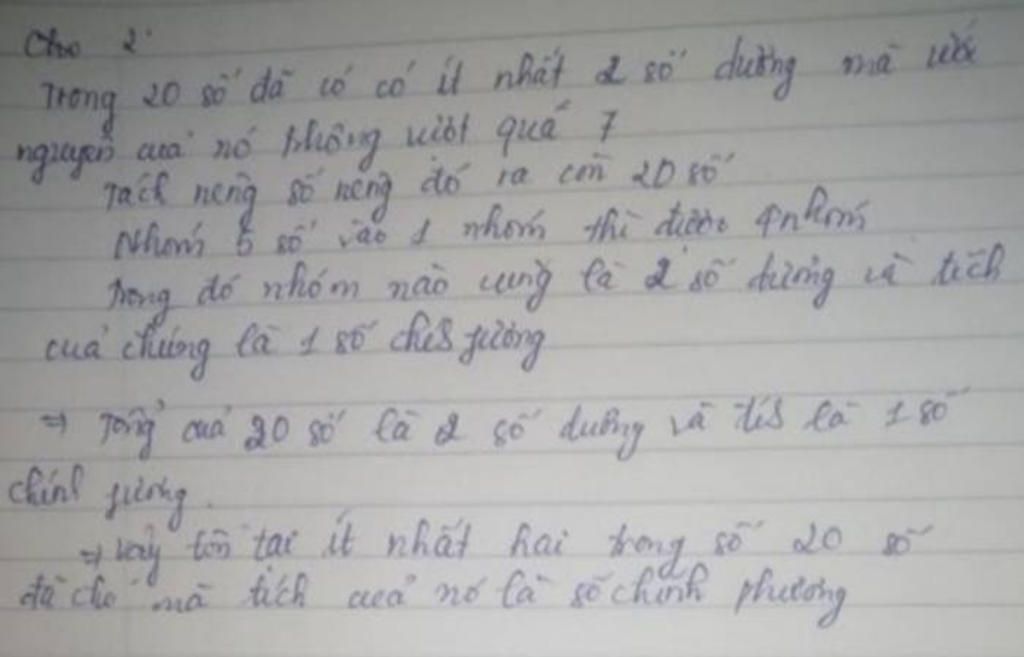 Cho 2
Trong 20 số đã có có ít nhất 2 số dường mà ước
nguyên của nó không vượt quá 7
Tách neng số neng đó ra còn 20 số
Nhóm 5 số vào 1 nhóm thì được 4 nhóm
Trong đó nhóm nào cung là 2 số dường và tích
của chúng là 1 số
⇒ Tổng của 20 số là 2 số dường và là 1 số
chính
⇒ vậy tồn tại ít nhất hai trong số 20 số
đã cho mà tích của nó là số chính phương